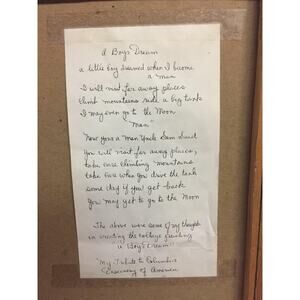 A Boy's Dream
a little boy dreamed when I become
a man
I will visit far away places
climb mountains ride a big tank
I may even go to the Moon
Man"
Now your a Man Uncle Sam said
You will visit far away places,
take care climbing mountains
take care when you drive the tank
some day if you get back
You may yet to go to the Moon
The above were some of my thoughts
in creating the collage painting
"a Boy's Dream"
My Tribute to Columbus
Discovery of America